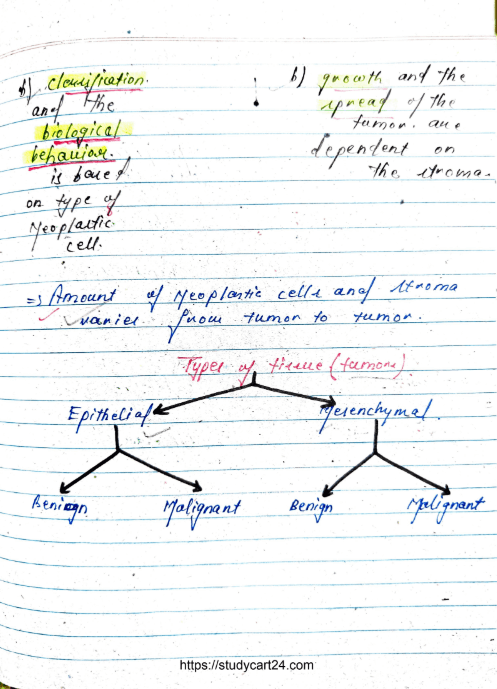 b) classification
and the
biological
behaviour
is based
on type of
Neoplastic
cell.
b) growth and the
spread of the
tumor. are
dependent on
the stroma.
=> Amount of Neoplastic cells and stroma
varies from tumor to tumor.
Types of tissue (tumors)
Epithelial
Mesenchymal.
Benign
Malignant
Benign
Malignant
https://studycart24.com